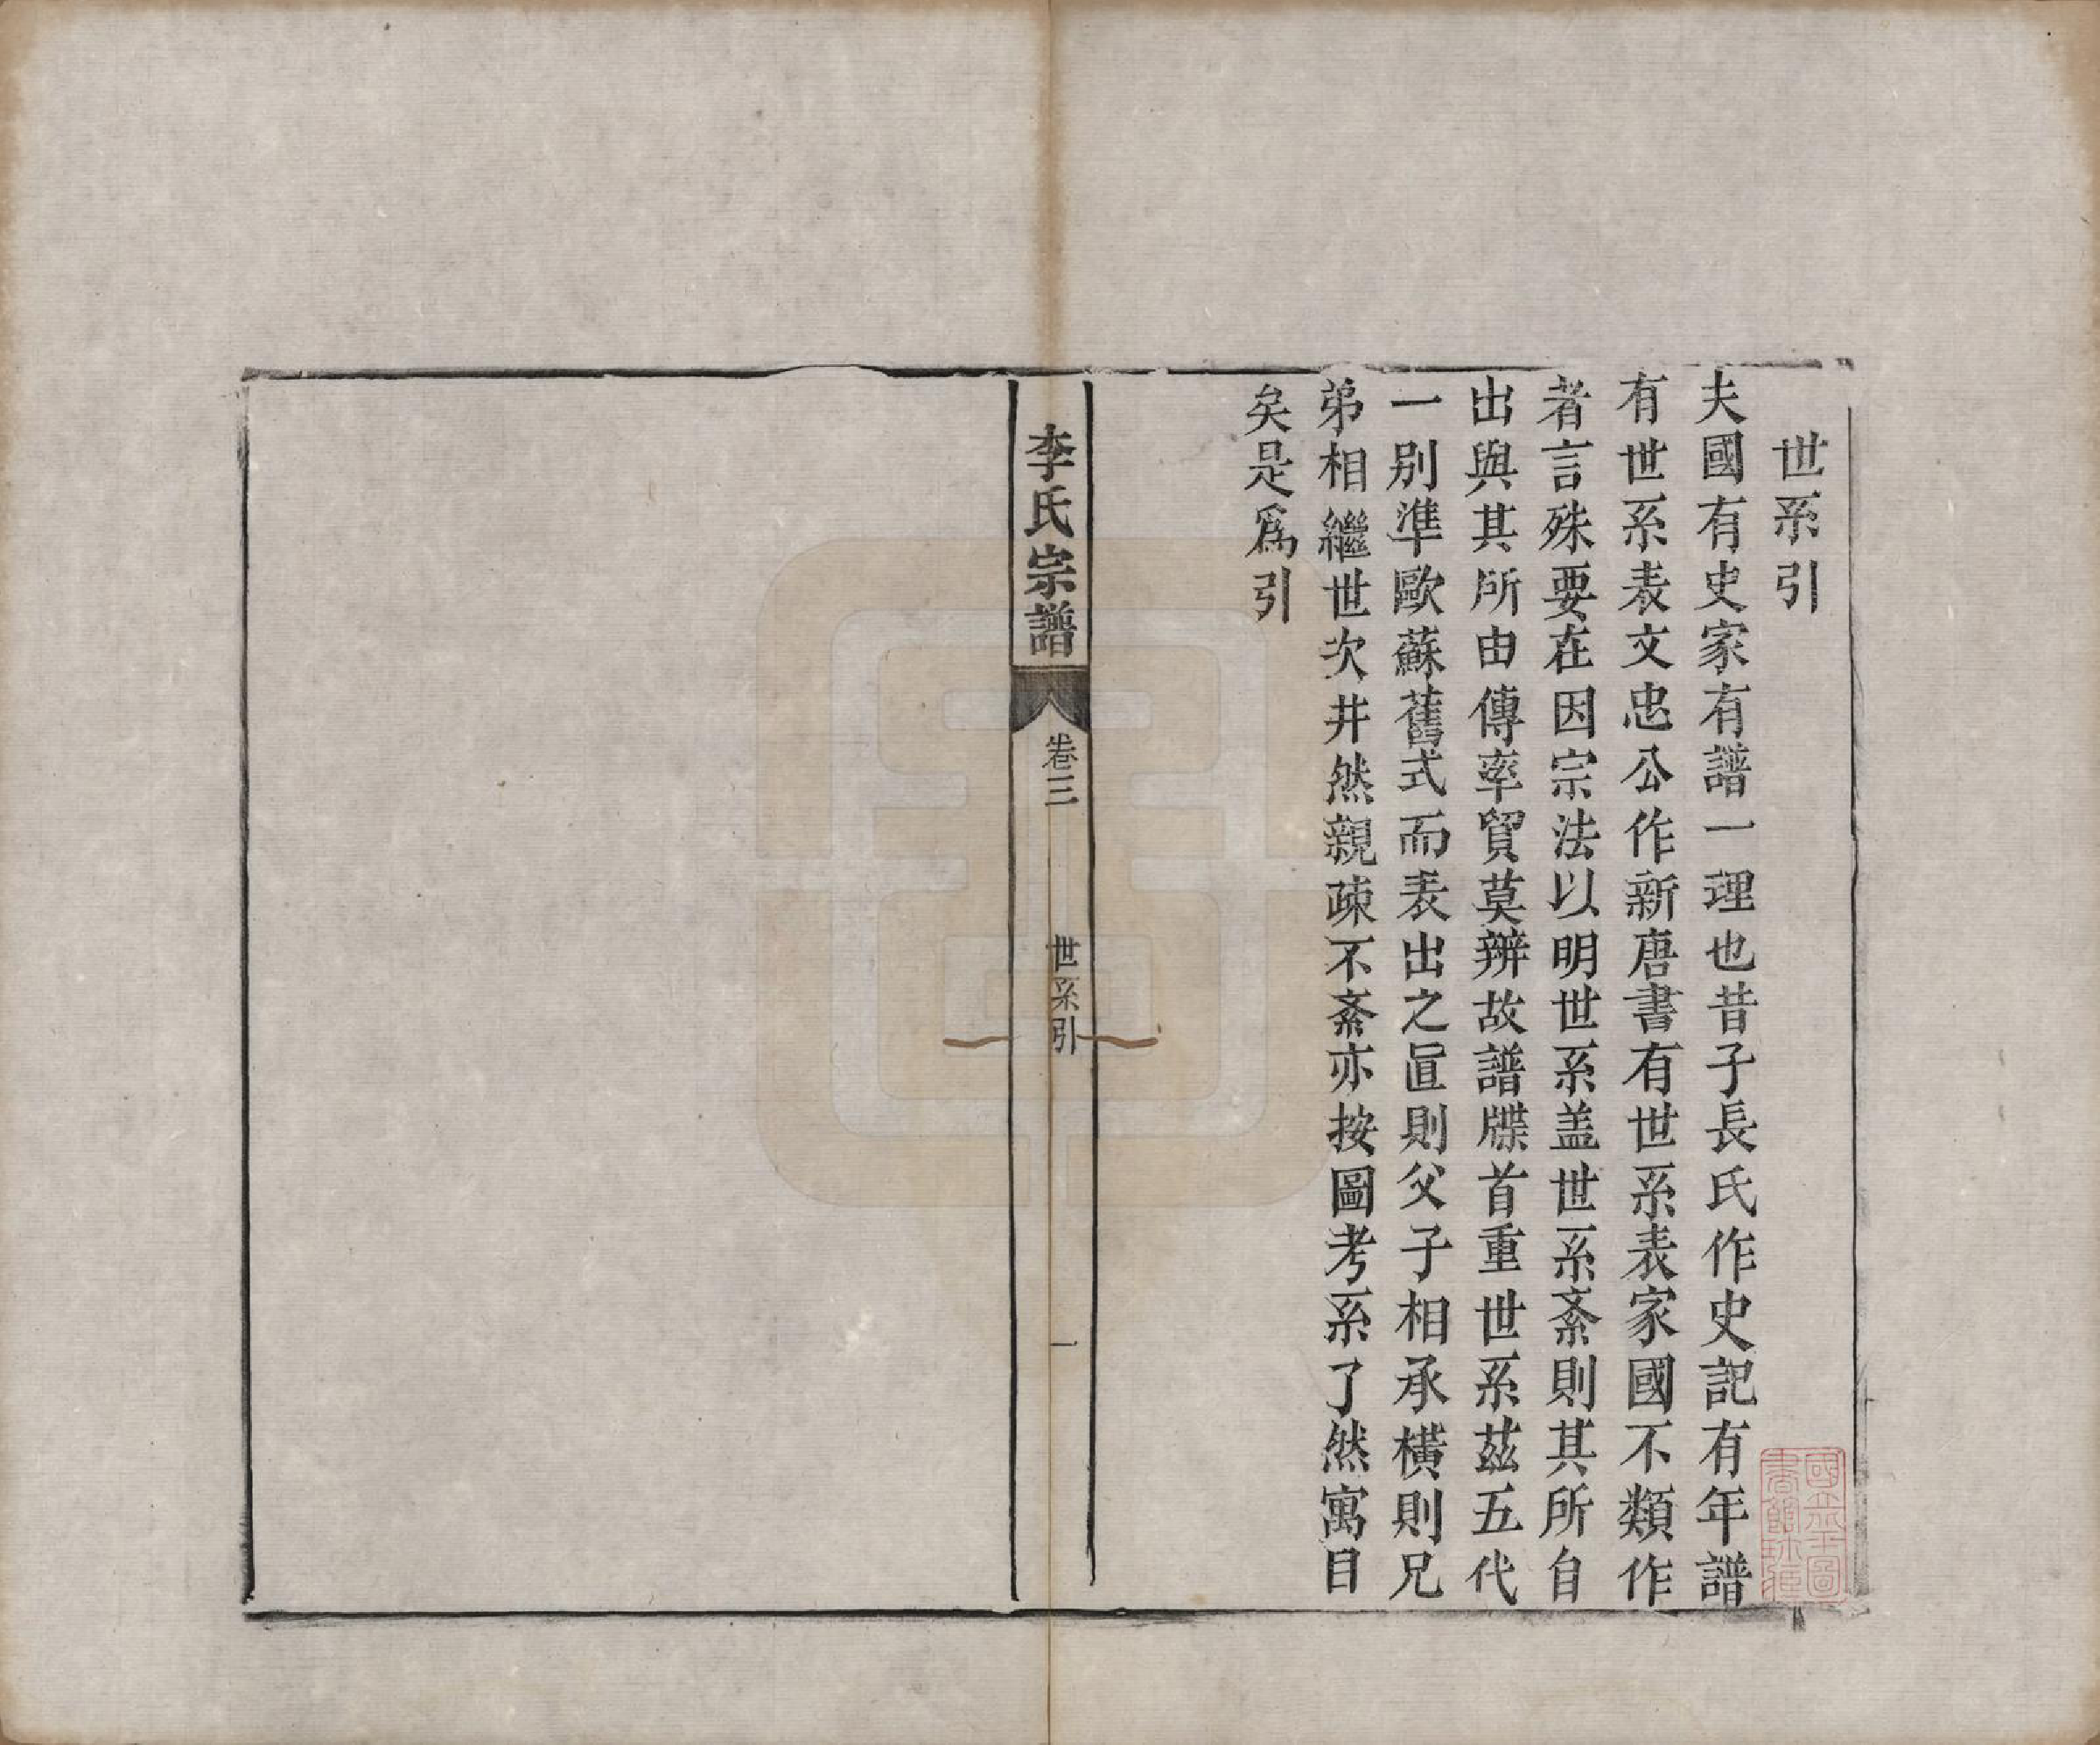 世系引
夫國有史家有譜一理也昔子長氏作史記有年譜
有世系表文忠公作新唐書有世系表家國不類作
者言殊要在因宗法以明世系盖世系紊則其所自
出與其所由傳率貿莫辨故譜牒首重世系茲五代
一別準歐蘇舊式而表出之直則父子相承橫則兄
弟相繼世次井然親疎不紊亦按圖考系了然寓目
矣是爲引
李氏宗譜
卷三
世系引
一
國立北平圖
書館珍藏